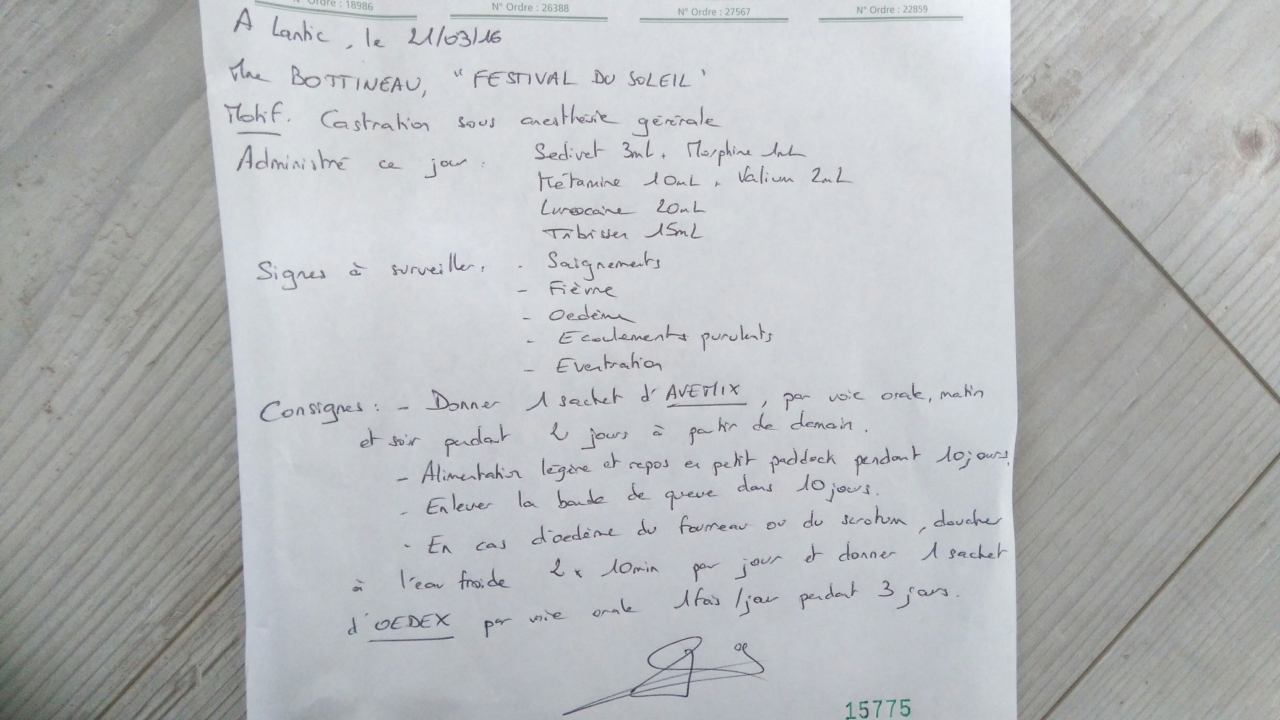 N° Ordre : 18986 N° Ordre : 26388 N° Ordre : 27567 N° Ordre : 22859
A Lantic, le 21/03/16
Mme BOTTINEAU, "FESTIVAL DU SOLEIL"
Motif. Castration sous anesthésie générale
Administré ce jour : Sedivet 3mL, Morphine 1mL
Kétamine 10mL, Valium 2mL
Lurocaine 20mL
Tribissen 15mL
Signes à surveiller. - Saignements
- Fièvre
- Oedème
- Ecoulements purulents
- Eventration
Consignes : - Donner 1 sachet d'AVEMIX, par voie orale, matin
et soir pendant 2 jours à partir de demain.
- Alimentation légère et repos en petit paddock pendant 10 jours.
- Enlever la bande de queue dans 10 jours.
- En cas d'oedème du fourreau ou du scrotum, doucher
à l'eau froide 2 x 10min par jour et donner 1 sachet
d'OEDEX par voie orale 1 fois/jour pendant 3 jours.
15775